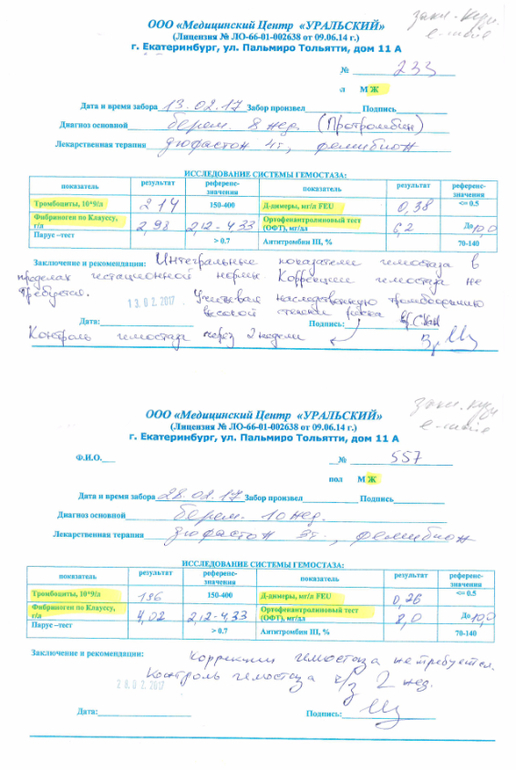 ООО «Медицинский Центр «УРАЛЬСКИЙ»
(Лицензия № ЛО-66-01-002638 от 09.06.14 г.)
г. Екатеринбург, ул. Пальмиро Тольятти, дом 11 А
e-mail
№ 233
л М Ж
Дата и время забора 13.02.17 Забор произвел Подпись
Диагноз основной берем. 8 нед. (Протромбин)
Лекарственная терапия дюфастон 4т, фемибион
ИССЛЕДОВАНИЕ СИСТЕМЫ ГЕМОСТАЗА:
показатель результат референс-значения показатель результат референс-значения
Тромбоциты, 10*9/л 214 150-400 Д-димеры, мг/л FEU 0,38 <= 0.5
Фибриноген по Клауссу, г/л 2,98 2,12-4,33 Ортофенантролиновый тест (ОФТ), мг/дл 6,2 До 10,0
Парус –тест > 0.7 Антитромбин III, % 70-140
Заключение и рекомендации: Интегральные показатели гемостаза в
пределах гестационной нормы. Коррекции гемостаза не
требуется.
13.02.2017 Учитывая наследственную тромбофилию
высокой степени риска
Дата: Подпись:
Контроль гемостаза через 2 недели
ООО «Медицинский Центр «УРАЛЬСКИЙ»
(Лицензия № ЛО-66-01-002638 от 09.06.14 г.)
г. Екатеринбург, ул. Пальмиро Тольятти, дом 11 А
e-mail
Ф.И.О. № 557
пол М Ж
Дата и время забора 28.02.17 Забор произвел Подпись
Диагноз основной берем. 10 нед.
Лекарственная терапия дюфастон 3т., фемибион
ИССЛЕДОВАНИЕ СИСТЕМЫ ГЕМОСТАЗА:
показатель результат референс-значения показатель результат референс-значения
Тромбоциты, 10*9/л 196 150-400 Д-димеры, мг/л FEU 0,26 <= 0.5
Фибриноген по Клауссу, г/л 4,02 2,12-4,33 Ортофенантролиновый тест (ОФТ), мг/дл 8,0 До 10,0
Парус –тест > 0.7 Антитромбин III, % 70-140
Заключение и рекомендации: Коррекции гемостаза не требуется.
Контроль гемостаза ч/з 2 нед.
28.02.2017
Дата: Подпись: